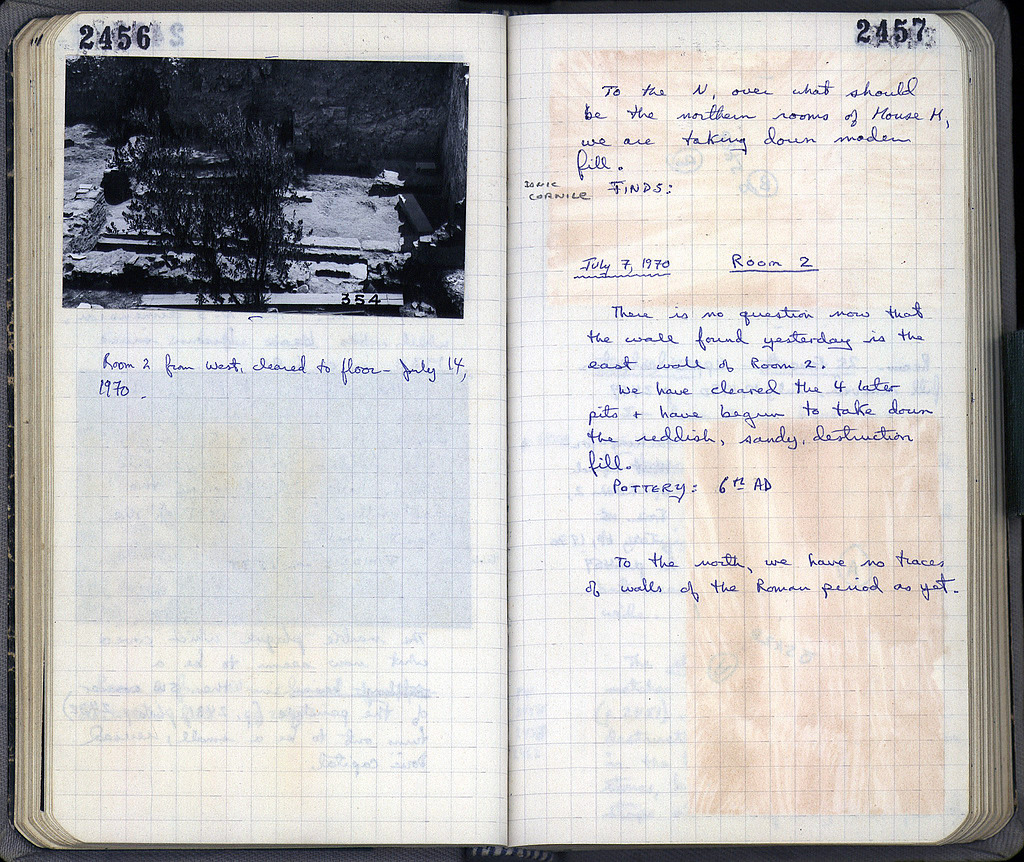 2456
354
Room 2 from west, cleared to floor - July 14,
1970.
2457
To the N, over what should
be the northern rooms of House H,
we are taking down modern
fill.
IONIC
CORNICE
FINDS:
July 7, 1970 Room 2
There is no question now that
the wall found yesterday is the
east wall of Room 2.
We have cleared the 4 later
pits + have begun to take down
the reddish, sandy, destruction
fill.
POTTERY: 6th AD
To the north, we have no traces
of walls of the Roman period as yet.